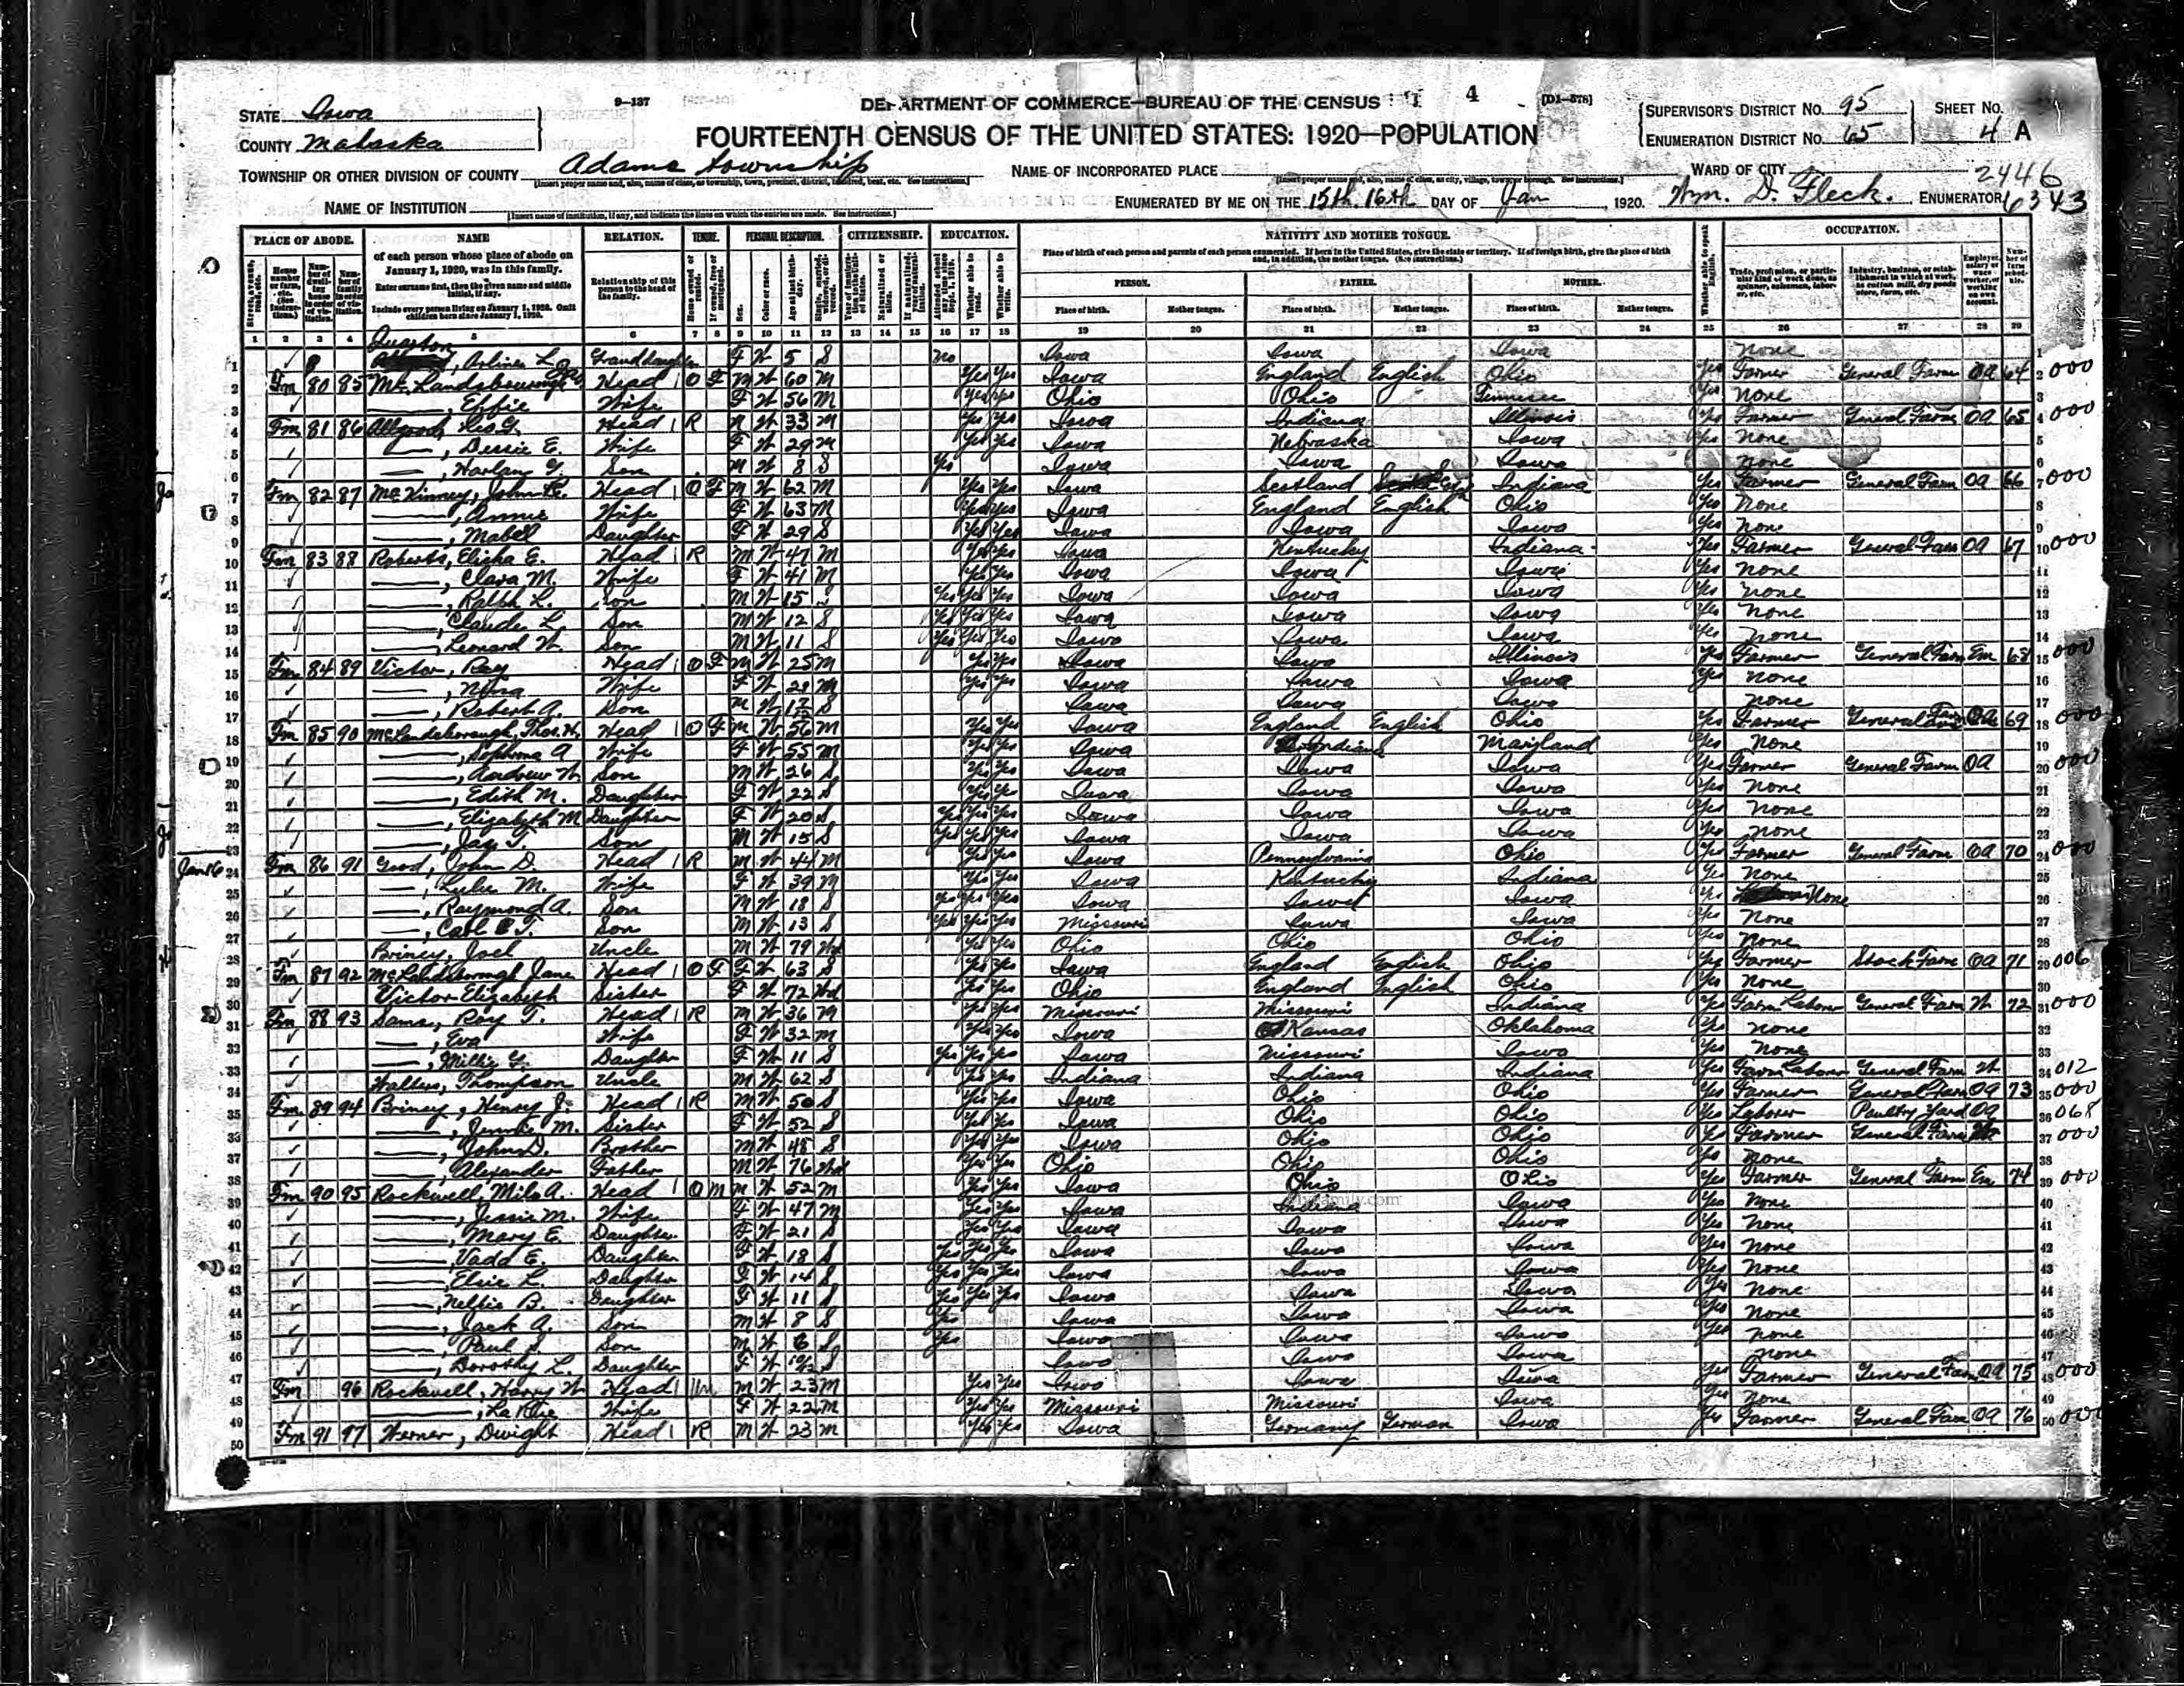 9-137
DEPARTMENT OF COMMERCE—BUREAU OF THE CENSUS
4
[D1-578]
STATE Iowa
COUNTY Mahaska
FOURTEENTH CENSUS OF THE UNITED STATES: 1920—POPULATION
SUPERVISOR'S DISTRICT No. 95
ENUMERATION DISTRICT No. 65
SHEET No.
4 A
TOWNSHIP OR OTHER DIVISION OF COUNTY Adams township
NAME OF INCORPORATED PLACE
WARD OF CITY
2446
NAME OF INSTITUTION
ENUMERATED BY ME ON THE 15th 16th DAY OF Jan, 1920. Wm. D. Fleck. ENUMERATOR
6343
PLACE OF ABODE. NAME RELATION. TENURE. PERSONAL DESCRIPTION. CITIZENSHIP. EDUCATION. NATIVITY AND MOTHER TONGUE. OCCUPATION.
of each person whose place of abode on January 1, 1920, was in this family.
Enter surname first, then the given name and middle initial, if any.
Include every person living on January 1, 1920. Omit children born since January 1, 1920.
Relationship of this person to the head of the family.
Place of birth of each person and parents of each person enumerated. If born in the United States, give the state or territory. If of foreign birth, give the place of birth and, in addition, the mother tongue. (See instructions.)
PERSON. FATHER. MOTHER.
Place of birth. Mother tongue. Place of birth. Mother tongue. Place of birth. Mother tongue.
1 2 3 4 5 6 7 8 9 10 11 12 13 14 15 16 17 18 19 20 21 22 23 24 25 26 27 28 29
1 Granddaughter F W 5 S no Iowa Iowa Iowa none
2 Fm 80 85 Head O F M W 60 M Yes Yes Iowa England English Ohio Yes Farmer General Farm OA 64 000
3 Effie Wife F W 56 M Yes Yes Ohio Ohio Tennessee Yes none
4 Fm 81 86 Head R M W 33 M Yes Yes Iowa Indiana Illinois Yes Farmer General Farm OA 65 000
5 Dessie E. Wife F W 29 M Yes Yes Iowa Nebraska Iowa Yes none
6 Harlan Son M W 8 S Yes Iowa Iowa Iowa none
7 Fm 82 87 McKinney, John Head O F M W 62 M Yes Yes Iowa Scotland Indiana Yes Farmer General Farm OA 66 000
8 Annie Wife F W 63 M Yes Yes Iowa England English Ohio Yes none
9 Mabel Daughter F W 29 S Yes Yes Iowa Iowa Iowa Yes none
10 Fm 83 88 Roberts, Elisha E. Head R M W 47 M Yes Yes Iowa Kentucky Indiana Yes Farmer General Farm OA 67 000
11 Clara M. Wife F W 41 M Yes Yes Iowa Iowa Iowa Yes none
12 Ralph L. Son M W 15 Yes Yes Yes Iowa Iowa Iowa Yes none
13 Claude L. Son M W 12 S Yes Yes Yes Iowa Iowa Iowa Yes none
14 Leonard W. Son M W 11 S Yes Yes Yes Iowa Iowa Iowa Yes none
15 Fm 84 89 Victor, Ray Head O F M W 25 M Yes Yes Iowa Iowa Illinois Yes Farmer General Farm Em 68 000
16 Nina Wife F W M Yes Yes Iowa Iowa Iowa Yes none
17 Robert A. Son M W S Iowa Iowa Iowa none
18 Fm 85 90 McLandsborough, Thos. H. Head O F M W 56 M Yes Yes Iowa England English Ohio Yes Farmer General Farm OA 69 000
19 Wife F W 55 M Yes Yes Iowa Indiana Maryland Yes none
20 Andrew W. Son M W 26 S Yes Yes Iowa Iowa Iowa Yes Farmer General Farm OA 000
21 Edith M. Daughter F W 22 S Yes Yes Iowa Iowa Iowa Yes none
22 Elizabeth M Daughter F W 20 S Yes Yes Yes Iowa Iowa Iowa Yes none
23 Jay T. Son M W 15 S Yes Yes Yes Iowa Iowa Iowa Yes none
Jan 16 24 Fm 86 91 Good, John D. Head R M W 44 M Yes Yes Iowa Pennsylvania Ohio Yes Farmer General Farm OA 70 000
25 Lulu M. Wife F W 39 M Yes Yes Iowa Kentucky Indiana Yes none
26 Raymond A. Son M W 18 S Yes Yes Yes Iowa Iowa Iowa Yes None
27 Carl T. Son M W 13 S Yes Yes Yes Missouri Iowa Iowa Yes none
28 Briney, Joel Uncle M W 79 Wd Yes Yes Ohio Ohio Ohio Yes none
29 Fm 87 92 McLandsborough Jane Head O F F W 63 S Yes Yes Iowa England English Ohio Yes Farmer Stock Farm OA 71 006
30 Victor Elizabeth Sister F W 72 Wd Yes Yes Ohio England English Ohio Yes none
31 Fm 88 93 Sams, Roy T. Head R M W 36 M Yes Yes Missouri Missouri Indiana Yes Farm Laborer General Farm W 72 000
32 Eva Wife F W 32 M Yes Yes Iowa Kansas Oklahoma Yes none
33 Daughter F W 11 S Yes Yes Yes Iowa Missouri Iowa Yes none
34 Walters, Thompson Uncle M W 62 S Yes Yes Indiana Indiana Indiana Yes Farm Laborer General Farm W 012
35 Fm 89 94 Briney, Henry J. Head R M W 50 S Yes Yes Iowa Ohio Ohio Yes Farmer General Farm OA 73 000
36 Jennie M. Sister F W 52 S Yes Yes Iowa Ohio Ohio Yes Laborer Poultry Yard OA 068
37 John D. Brother M W 48 S Yes Yes Iowa Ohio Ohio Yes Farmer General Farm 000
38 Alexander Father M W 76 Wd Yes Yes Ohio Ohio Ohio Yes none
39 Fm 90 95 Rockwell, Milo A. Head O M M W 52 M Yes Yes Iowa Ohio Ohio Yes Farmer General Farm Em 74 000
40 Jessie M. Wife F W 47 M Yes Yes Iowa Indiana Iowa Yes none
41 Mary E. Daughter F W 21 S Yes Yes Iowa Iowa Iowa Yes none
42 Vada E. Daughter F W 18 S Yes Yes Yes Iowa Iowa Iowa Yes none
43 Elsie L. Daughter F W 14 S Yes Yes Yes Iowa Iowa Iowa Yes none
44 Nellie B. Daughter F W 11 S Yes Yes Yes Iowa Iowa Iowa Yes none
45 Jack A. Son M W 8 S Yes Iowa Iowa Iowa Yes none
46 Paul S. Son M W 6 S Yes Iowa Iowa Iowa Yes none
47 Dorothy L. Daughter F W S Iowa Iowa Iowa none
48 Fm 96 Rockwell, Harry W Head M W 23 M Yes Yes Iowa Iowa Iowa Yes Farmer General Farm OA 75 000
49 Wife F W 22 M Yes Yes Missouri Missouri Iowa Yes none
50 Fm 91 97 Werner, Dwight Head R M W 23 M Yes Yes Iowa Germany German Iowa Yes Farmer General Farm OA 76 000